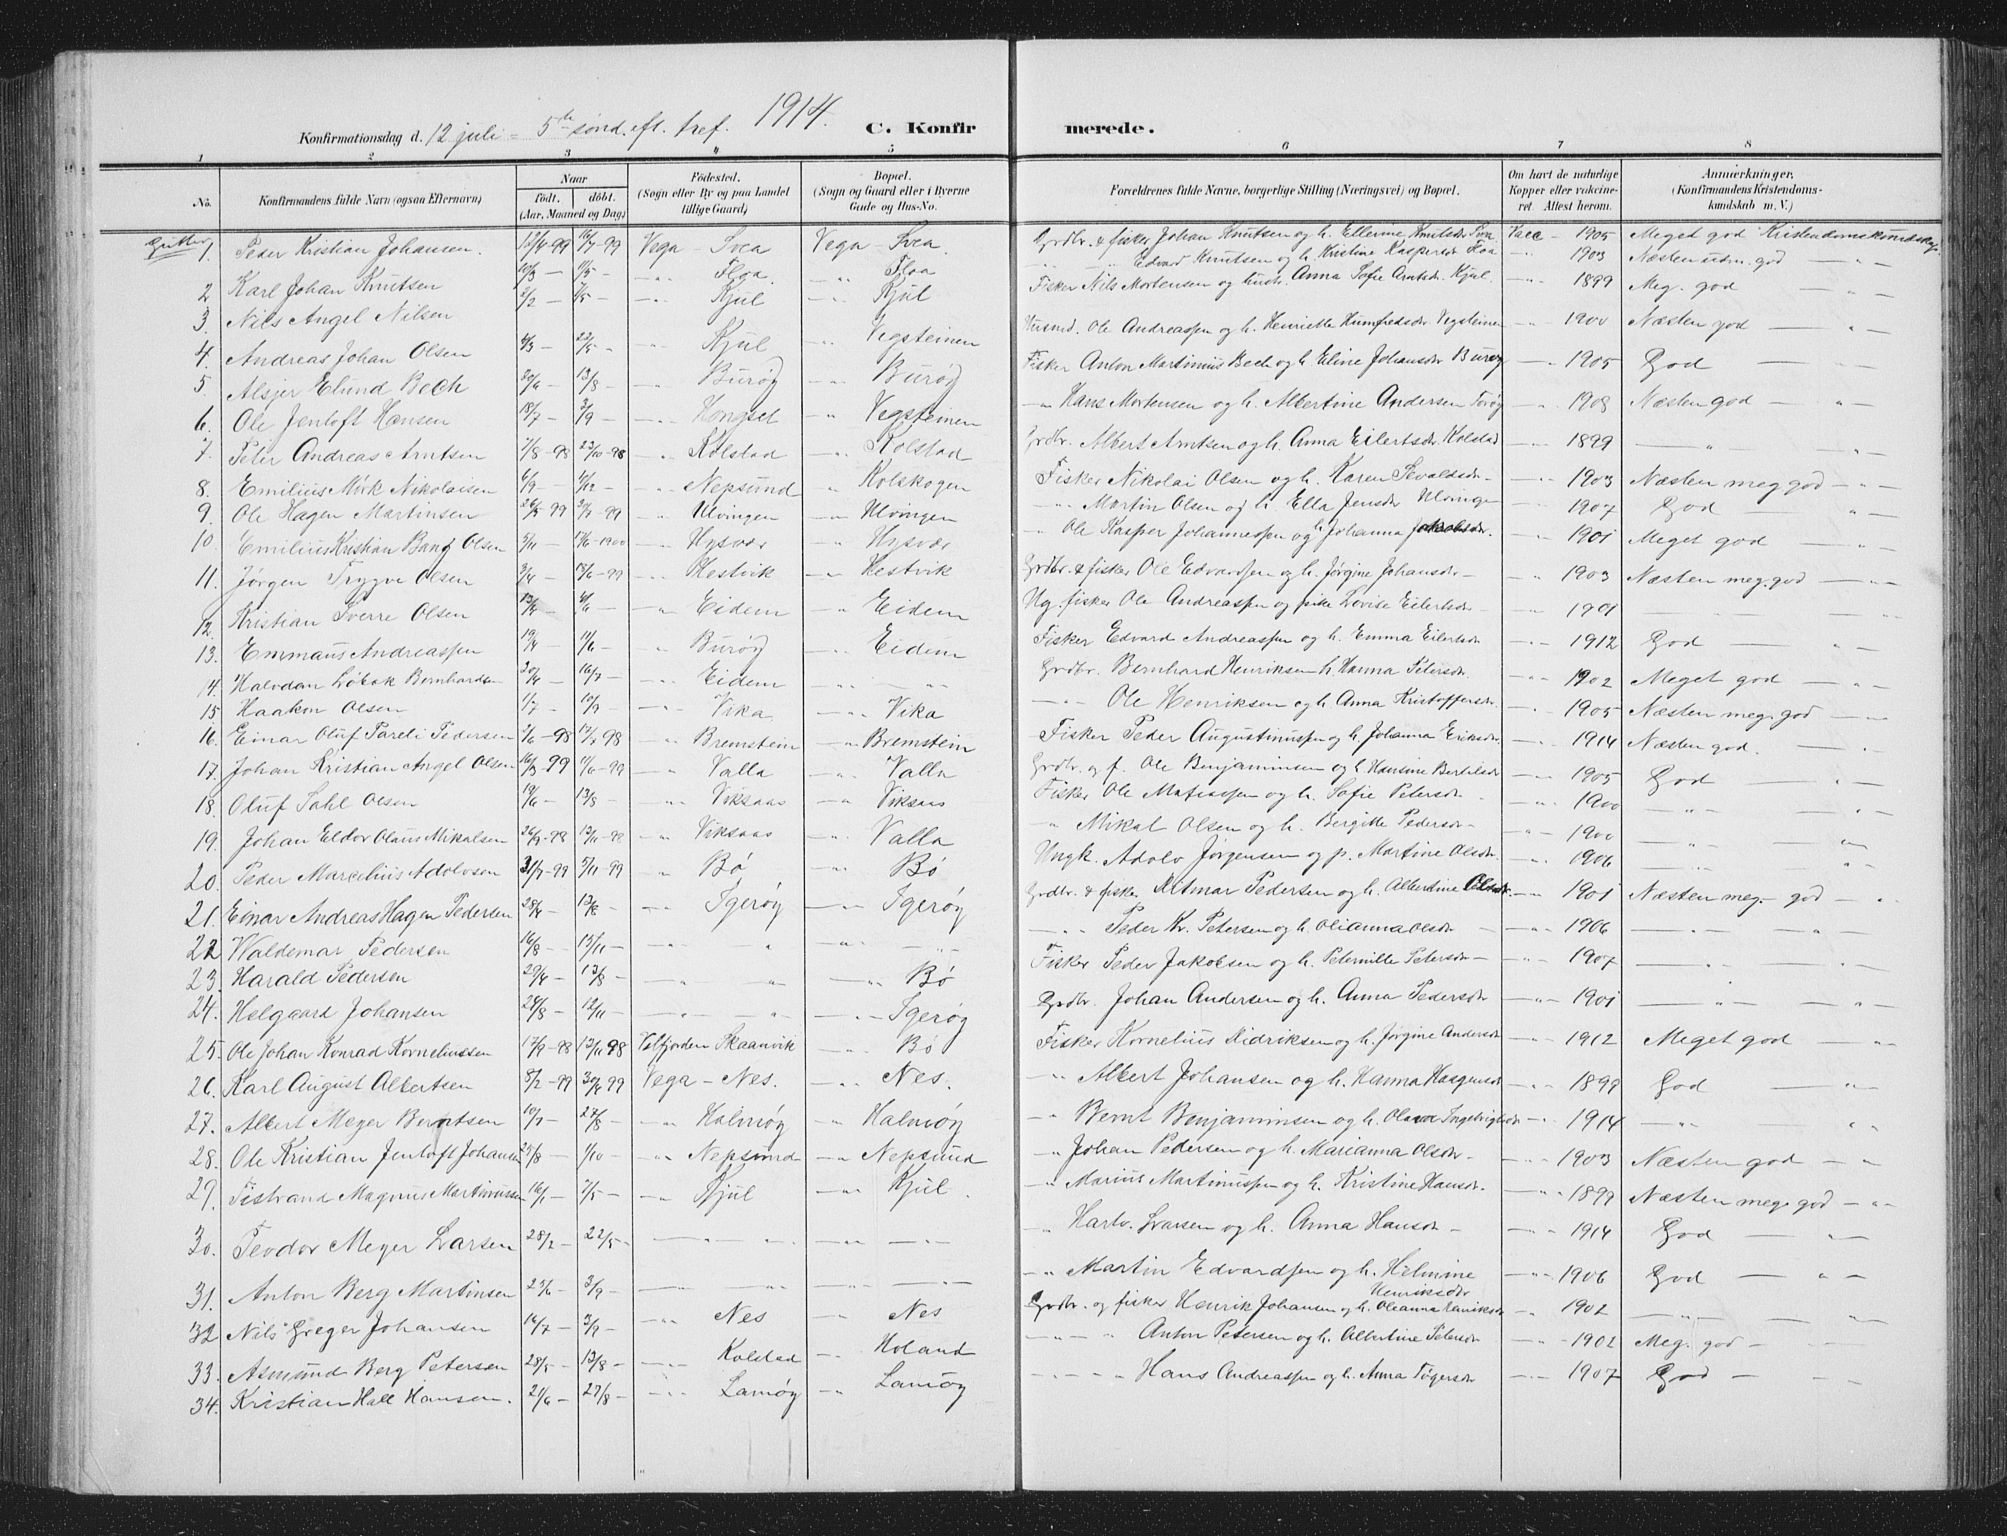 Konfirmationsdag d. 12 juli - 5te sønd. eft. tref. 1914. C. Konfirmerede.
1 2 3 4 5 6 7 8
No. Konfirmandens fulde Navn (ogsaa Efternavn) Naar født. døbt. (Aar, Maaned og Dag) Fødested. (Sogn eller By og paa Landet tillige Gaard) Bopæl. (Sogn og Gaard eller i Byerne Gade og Hus-No. Forældrenes fulde Navne, borgerlige Stilling (Næringsvei) og Bopæl. Om havt de naturlige Kopper eller vaccineret. Attest herom. Anmærkninger. (Konfirmandens Kristendomskundskab m. V.)
Gutter
1. Peder Kristian Johansen. 12/4-99 16/7-99 Vega - Svea Vega - Svea Grdbr. & fisker Johan Knutsen og h. Ellerine Knutsdr. Vacc - 1905 Meget god Kristendomskundskap
2 Karl Johan Knutsen 10/3 - 11/5 - -"- Floa -"- Floa " " Edvard Knutsen og h. Kristine Kaspersdr Floa -"- 1903 Næsten udm. god - " -
3. Nils Angel Nilsen 2/2 - 7/5 - -"- Kjul " Kjul Fisker Nils Mortensen og hust. Anna Sofie Arntsdr. Kjul -"- 1899 Meg. god - " -
4. Andreas Johan Olsen 4/3 - 22/5 - " Kjul -"- Vegsteinen Husmd. Ole Andreassen og h. Henriette Humfredsdr. Vegsteinen -"- 1900 Næsten god - " -
5. Alsjer Elund Bech 20/6 - 13/8 - -"- Burøy -"- Burøy Fisker Anton Martinius Bech og h Eline Johansdr Burøy -"- 1905 God - " -
6. Ole Jentoft Hansen 18/7 - 3/9 - -"- Hongset " Vegsteinen -"- Hans Mortensen og h. Albertine Andersen -"- 1908 Næsten god - " -
7. Peter Andreas Arntsen 7/8-98 23/10-98 " Kolstad -"- Kolstad Grdbr. Albert Arntsen og h. Anna Eilertsdr. Kolstad -"- 1899 - " -
8. Emilius Mørk Nikolaisen 6/9 - 4/12 - -"- Nepsund " Kolskogen Fisker Nikolai Olsen og h. Karen Sevaldsdr. -"- 1903 Næsten meg. god - " -
9. Ole Hagen Martinsen -99 -99 -"- Ulvingen -"- Ulvingen -"- Martin Olsen og h. Ella Jensdr Ulvingen -"- 1907 God - " -
10. Emilius Kristian Bang Olsen 5/11 - -1900 -"- Hysvær -"- Hysvær " Ole Kasper Johannessen og h. Johanna Jakobsdr. -"- 1901 Meget god - " -
11. Jørgen Trygve Olsen 3/4 - -99 -"- Hestvik -"- Hestvik Grdbr. & fisker Ole Edvardsen og h. Jørgine Johansdr - " 1903 Næsten meg. god - " -
12. Kristian Sverre Olsen -"- Eidem -"- Eidem Ug. fisker Ole Andreassen og pike Lovise Eilertsdr -"- 1901 - " -
13. Emmaus Andreassen 19/4 - 11/6 - " Burøy -"- Eidem Fisker Edvard Andreassen og h. Emma Eilertsdr -"- 1912 God - " -
14. Halvdan Løbak Bernhardsen 16/7 - -"- Eidem -"- " Grdbr. Bernhard Henriksen h. Hanna Petersdr. -"- 1902 Meget god - " -
15 Haakon Olsen 1/7 - -"- Vika -"- Vika -"- Ole Henriksen og h. Anna Kristoffersdr. -"- 1905 Næsten meg. god - " -
16. Einar Oluf Pareli Pedersen -98 17/7 98 -"- Bremstein -"- Bremstein Fisker Peder Augustinussen og h. Johanna Eriksdr. -"- 1914 Næsten god. - " -
17. Johan Kristian Angel Olsen 16/3-99 -99 -"- Valla -"- Valla Grdbr. og f. Ole Benjaminsen og h Hansine Bertelsdr -"- 1905 God - " -
18. Oluf Sahl Olsen 19/6 - 13/8 - -"- Viksaas -"- Viksaas Fisker Ole Matiassen og h. Sofie Petersdr - -"- 1900 - " -
19. Johan Eldor Olaus Mikalsen 26/9-98 13/11-98 -"- Viksaas -"- Valla " Mikal Olsen og h. Bergitte Pedersdr - -"- 1900 - " -
20. Peder Marcelius Adolvson 31/7-99 5/11-99 -"- Bø -"- Bø Ungk. Adolv Jørgensen og p. Martine Olsdr. -"- 1906 - " -
21. Einar Andreas Hagen Pedersen 28/4 - 13/8 - -"- Igerøy -"- Igerøy Grdbr. & fisker Ditmar Pedersen og h. Albertine Olsdr. -"- 1901 Næsten meg. god - "
22 Waldemar Pedersen 16/8 - 13/11 - -"- " -"- " -"- Peder Kr. Petersen og h. Olianna Olsdr -"- 1906 - " -
23. Harald Pedersen 29/4 - 13/8 - -"- " -"- Bø Fisker Peder Jakobsen og h. Peternille Petersdr - -"- 1907 - " -
24. Helgaard Johansen 24/8 - 12/11 - -"- " -"- Igerøy Grdbr. Johan Andersen og h. Anna Pedersdr -"- 1901 - " -
25. Ole Johan Konrad Korneliussen 17/9-98 13/11 98 Velfjorden Skaanvik -"- Bø Fisker Kornelius Didriksen og h. Jørgine Andersdr -"- 1912 Meget god - " -
26. Karl August Albertsen 8/2-99 30/4 99 Vega - Nes. -"- Nes. -"- Albert Johansen og h. Hanna Haagensdr -"- 1899 God - " -
27. Albert Meyer Berntsen 10/7 - 27/8 - -"- Halmøy -"- Halmøy -"- Bernt Benjaminsen og h. Olava Ingebrigtsdr -"- 1914 - " -
28. Ole Kristian Jentoft Johansen 23/8 - 1/10 - " Nepsund -"- Nepsund -"- Johan Pedersen og h. Marianna Olsdr - -"- 1903 Næsten god - " -
29. Tistrand Magnus Martinussen 16/1 - 7/5 - -"- Kjul -"- Kjul -"- Marius Martinussen og h. Kristine Hansdr. -"- 1899 Næsten meg. god - " -
30. Teodor Meyer Larsen 28/2 - 22/5 - -"- " -"- " Hartv. Larsen og h. Anna Hansdr - -"- 1914 God - " -
31. Anton Berg Martinsen 23/6 - 3/9 - -"- " -"- -"- -"- Martin Edvardsen og h. Helmine Henriksdr -"- 1906 God - " -
32 Nils Greger Johansen 14/7 - 3/9 - -"- Nes -"- Nes Grdbr. og fisker Henrik Johansen og h. Oleanna Henriksdr " 1902 - " -
33. Asmund Berg Petersen 28/5 - 13/8 - -"- Kolstad -"- Holand -"- " Anton Petersen og h. Albertine Petersdr -"- 1902 Meg. god - " -
34. Kristian Hall Hansen. 21/6 - 27/8 - -"- Lamøy -"- Lamøy -"- " Hans Andreassen og h. Anna Tøgersdr -"- 1907 God - " -